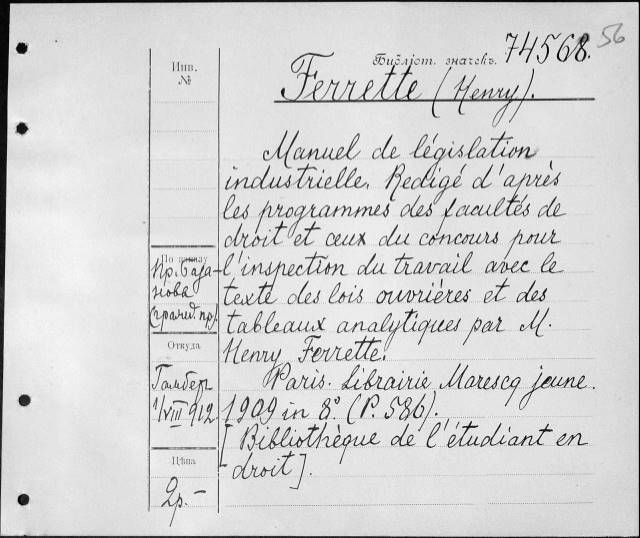 56
Библіот. значекъ. 74568.
Инв.
№
Ferrette (Henry).
Manuel de législation
industrielle. Redigé d'après
les programmes des facultés de
droit et ceux du concours pour
l'inspection du travail avec le
texte des lois ouvrières et des
tableaux analytiques par M.
Henry Ferrette.
Paris. Librairie Marescq jeune.
1909 in 8º. (P. 586).
[Bibliothèque de l'étudiant en
droit].
По заказу
Пр. База-
нова
(гражд. пр.)
Откуда
Гамбер
1/VIII 912.
Цѣна
2р.-